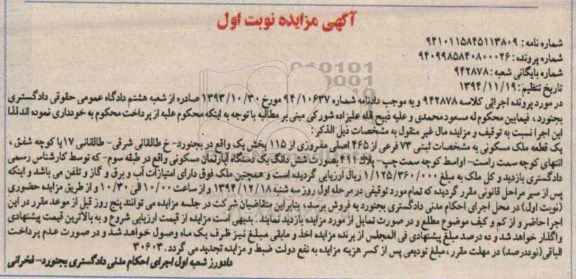 آگهی مزایده نوبت اول
شماره نامه : ۹۴۱۰۱۱۵۸۴۵۱۱۳۸۰۹
شماره پرونده : ۹۴۰۹۹۸۵۸۴۰۸۰۰۰۲۶
شماره بایگانی شعبه : ۹۴۲۸۷۸
تاریخ تنظیم : ۱۳۹۴/۱۱/۱۹
در مورد پرونده اجرایی کلاسه ۹۴۲۸۷۸ و به موجب دادنامه شماره ۹۴/۱۰۶۳۷ مورخ ۱۳۹۳/۱۰/۳۰ صادره از شعبه هشتم دادگاه عمومی حقوقی دادگستری
بجنورد، فیمابین محکوم له سعود محمدی و علیه ذبیح اله علیزاده شورکی مبنی بر مطالبه با توجه به اینکه محکوم علیه از پرداخت محکوم به خودداری نموده لذا لذا
این اجرا نسبت به توقیف و مزایده مال غیر منقول به مشخصات ذیل الذکر:
یک قطعه ملک مسکونی به مشخصات ثبتی ۷۳ فرعی از ۴۶۵ اصلی مفروزی از ۱۱۵ بخش یک واقع در بجنورد- خ طالقانی شرقی- طالقانی ۱۷ یا کوچه شفق،
انتهای کوچه سمت راست- اواسط کوچه سمت چپ- پلاک ۴۱۱ بصورت شش دانگ یک دستگاه آپارتمان مسکونی واقع در طبقه سوم- که توسط کارشناس رسمی
دادگستری بازدید و کل ملک به مبلغ ۱/۱۲۵/۳۶۰/۰۰۰ ریال ارزیابی گردیده است و همچنین ملک فوق دارای امتیازات آب و برق و گاز و تلفن می باشد و اینکه
پس از سیر مراحل قانونی مقرر گردیده که تمام مورد توقیفی در مرحله اول روز سه شنبه ۱۳۹۴/۱۲/۱۸ و از ساعت ۱۰/۰۰ الی ۱۰/۳۰ و از طریق مزایده حضوری
(نوبت اول) در محل اجرای احکام مدنی دادگستری بجنورد به فروش برسد، بنابراین متقاضیان شرکت در جلسه مزایده می توانند پنج روز قبل از موعد مقرر در این
اجرا حاضر و از کم و کیف موضوع مطلع و در صورت تمایل از مورد مزایده بازدید نمایند. بدیهی است مزایده از قیمت ارزیابی شروع و به بالاترین قیمت پیشنهادی
واگذار خواهد شد و ده درصد مبلغ پیشنهادی فی المجلس از برنده مزایده اخذ و مابقی مبلغ نیز ظرف یک ماه وصول خواهد شد و در صورت عدم پرداخت
الباقی (نود درصد) در مهلت مقرر، مبلغ تودیعی پس از کسر هزینه مزایده به نفع دولت ضبط و مزایده تجدید می گردد. ۳۰۶۰۳
دادورز شعبه اول اجرای احکام مدنی دادگستری بجنورد- فخرانی